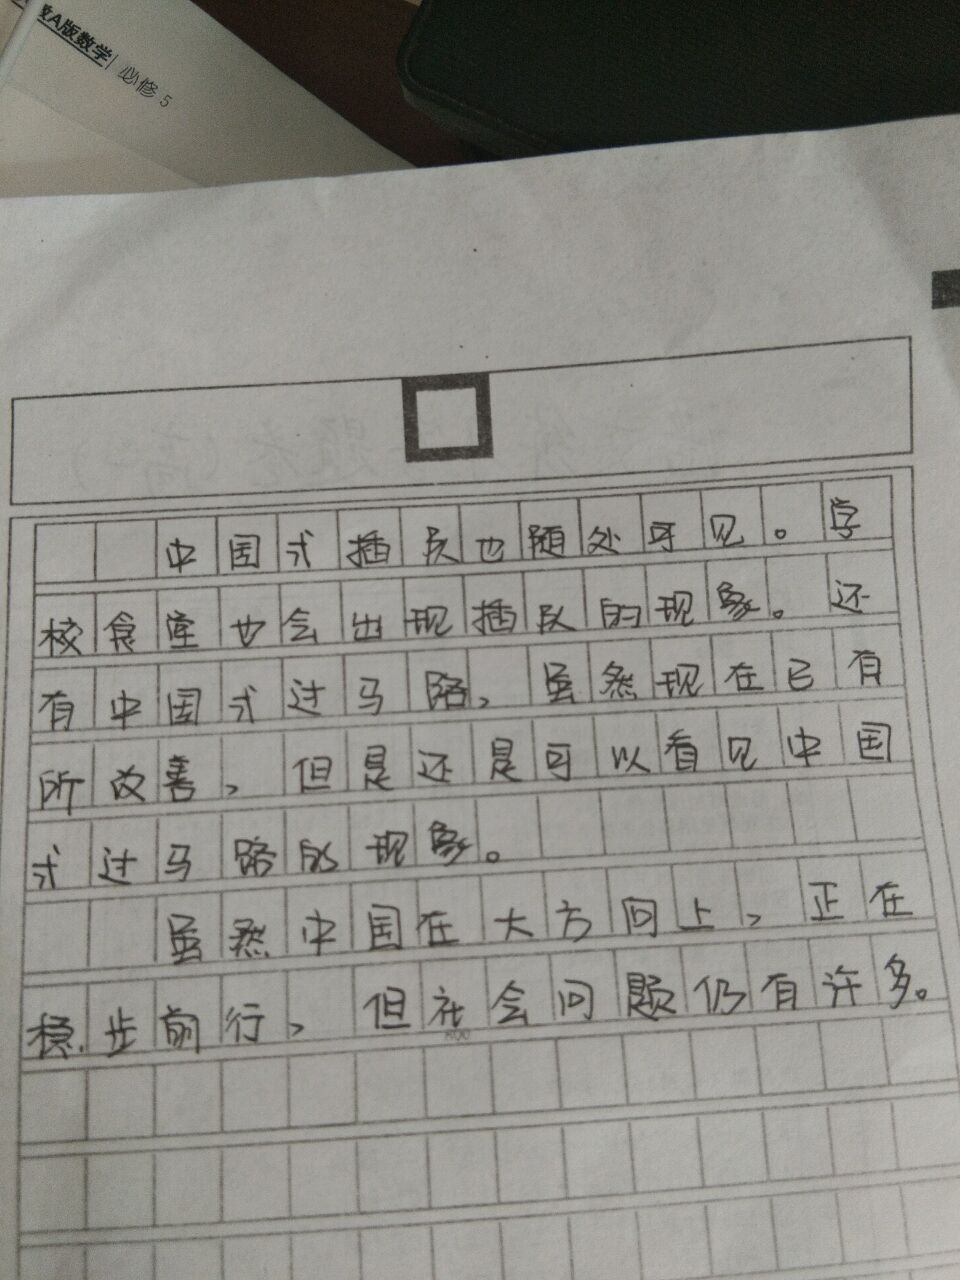 教A版数学 必修5
中国式插队也随处可见。学
校食堂也会出现插队的现象。还
有中国式过马路,虽然现在已有
所改善,但是还是可以看见中国
式过马路的现象。
虽然中国在大方向上,正在
稳步前行,但社会问题仍有许多。
800